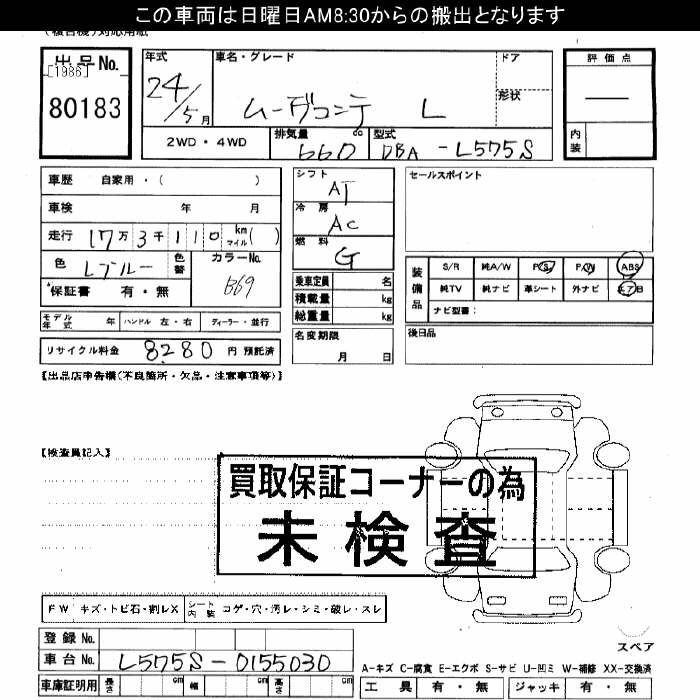 この車両は日曜日AM8:30からの搬出となります
出品No.
[1986]
80183
年式
24/5月
車名・グレード
ムーヴコンテ L
ドア
形状
評価点
内装
2WD・4WD
排気量
660 cc
型式
DBA-L575S
車歴 自家用・( )
車検 年 月
走行 17万3千110 km マイル( )
色 Lブルー
色替
カラーNo.
B69
保証書 有・無
シフト
AT
冷房
AC
燃料
G
乗車定員 名
積載量 kg
総重量 kg
セールスポイント
装備品
S/R 純A/W P/S P/W ABS
純TV 純ナビ 革シート 外ナビ エアB
ナビ型番:
モデル年式 年 ハンドル 左・右 ディーラー・並行
リサイクル料金 8280 円 預託済
名変期限
月 日
後日品
【出品店申告欄(不良箇所・欠品・注意事項等)】
【検査員記入】
買取保証コーナーの為
未検査
FW キズ・トビ石・割レX
シート内装 コゲ・穴・汚レ・シミ・破レ・スレ
スペア
登録No.
車台No. L575S-0155030
A-キズ C-腐食 E-エクボ S-サビ U-凹ミ W-補修 XX-交換済
車庫証明用 長さ cm 幅 cm 高さ cm
工具 有・無 ジャッキ 有・無